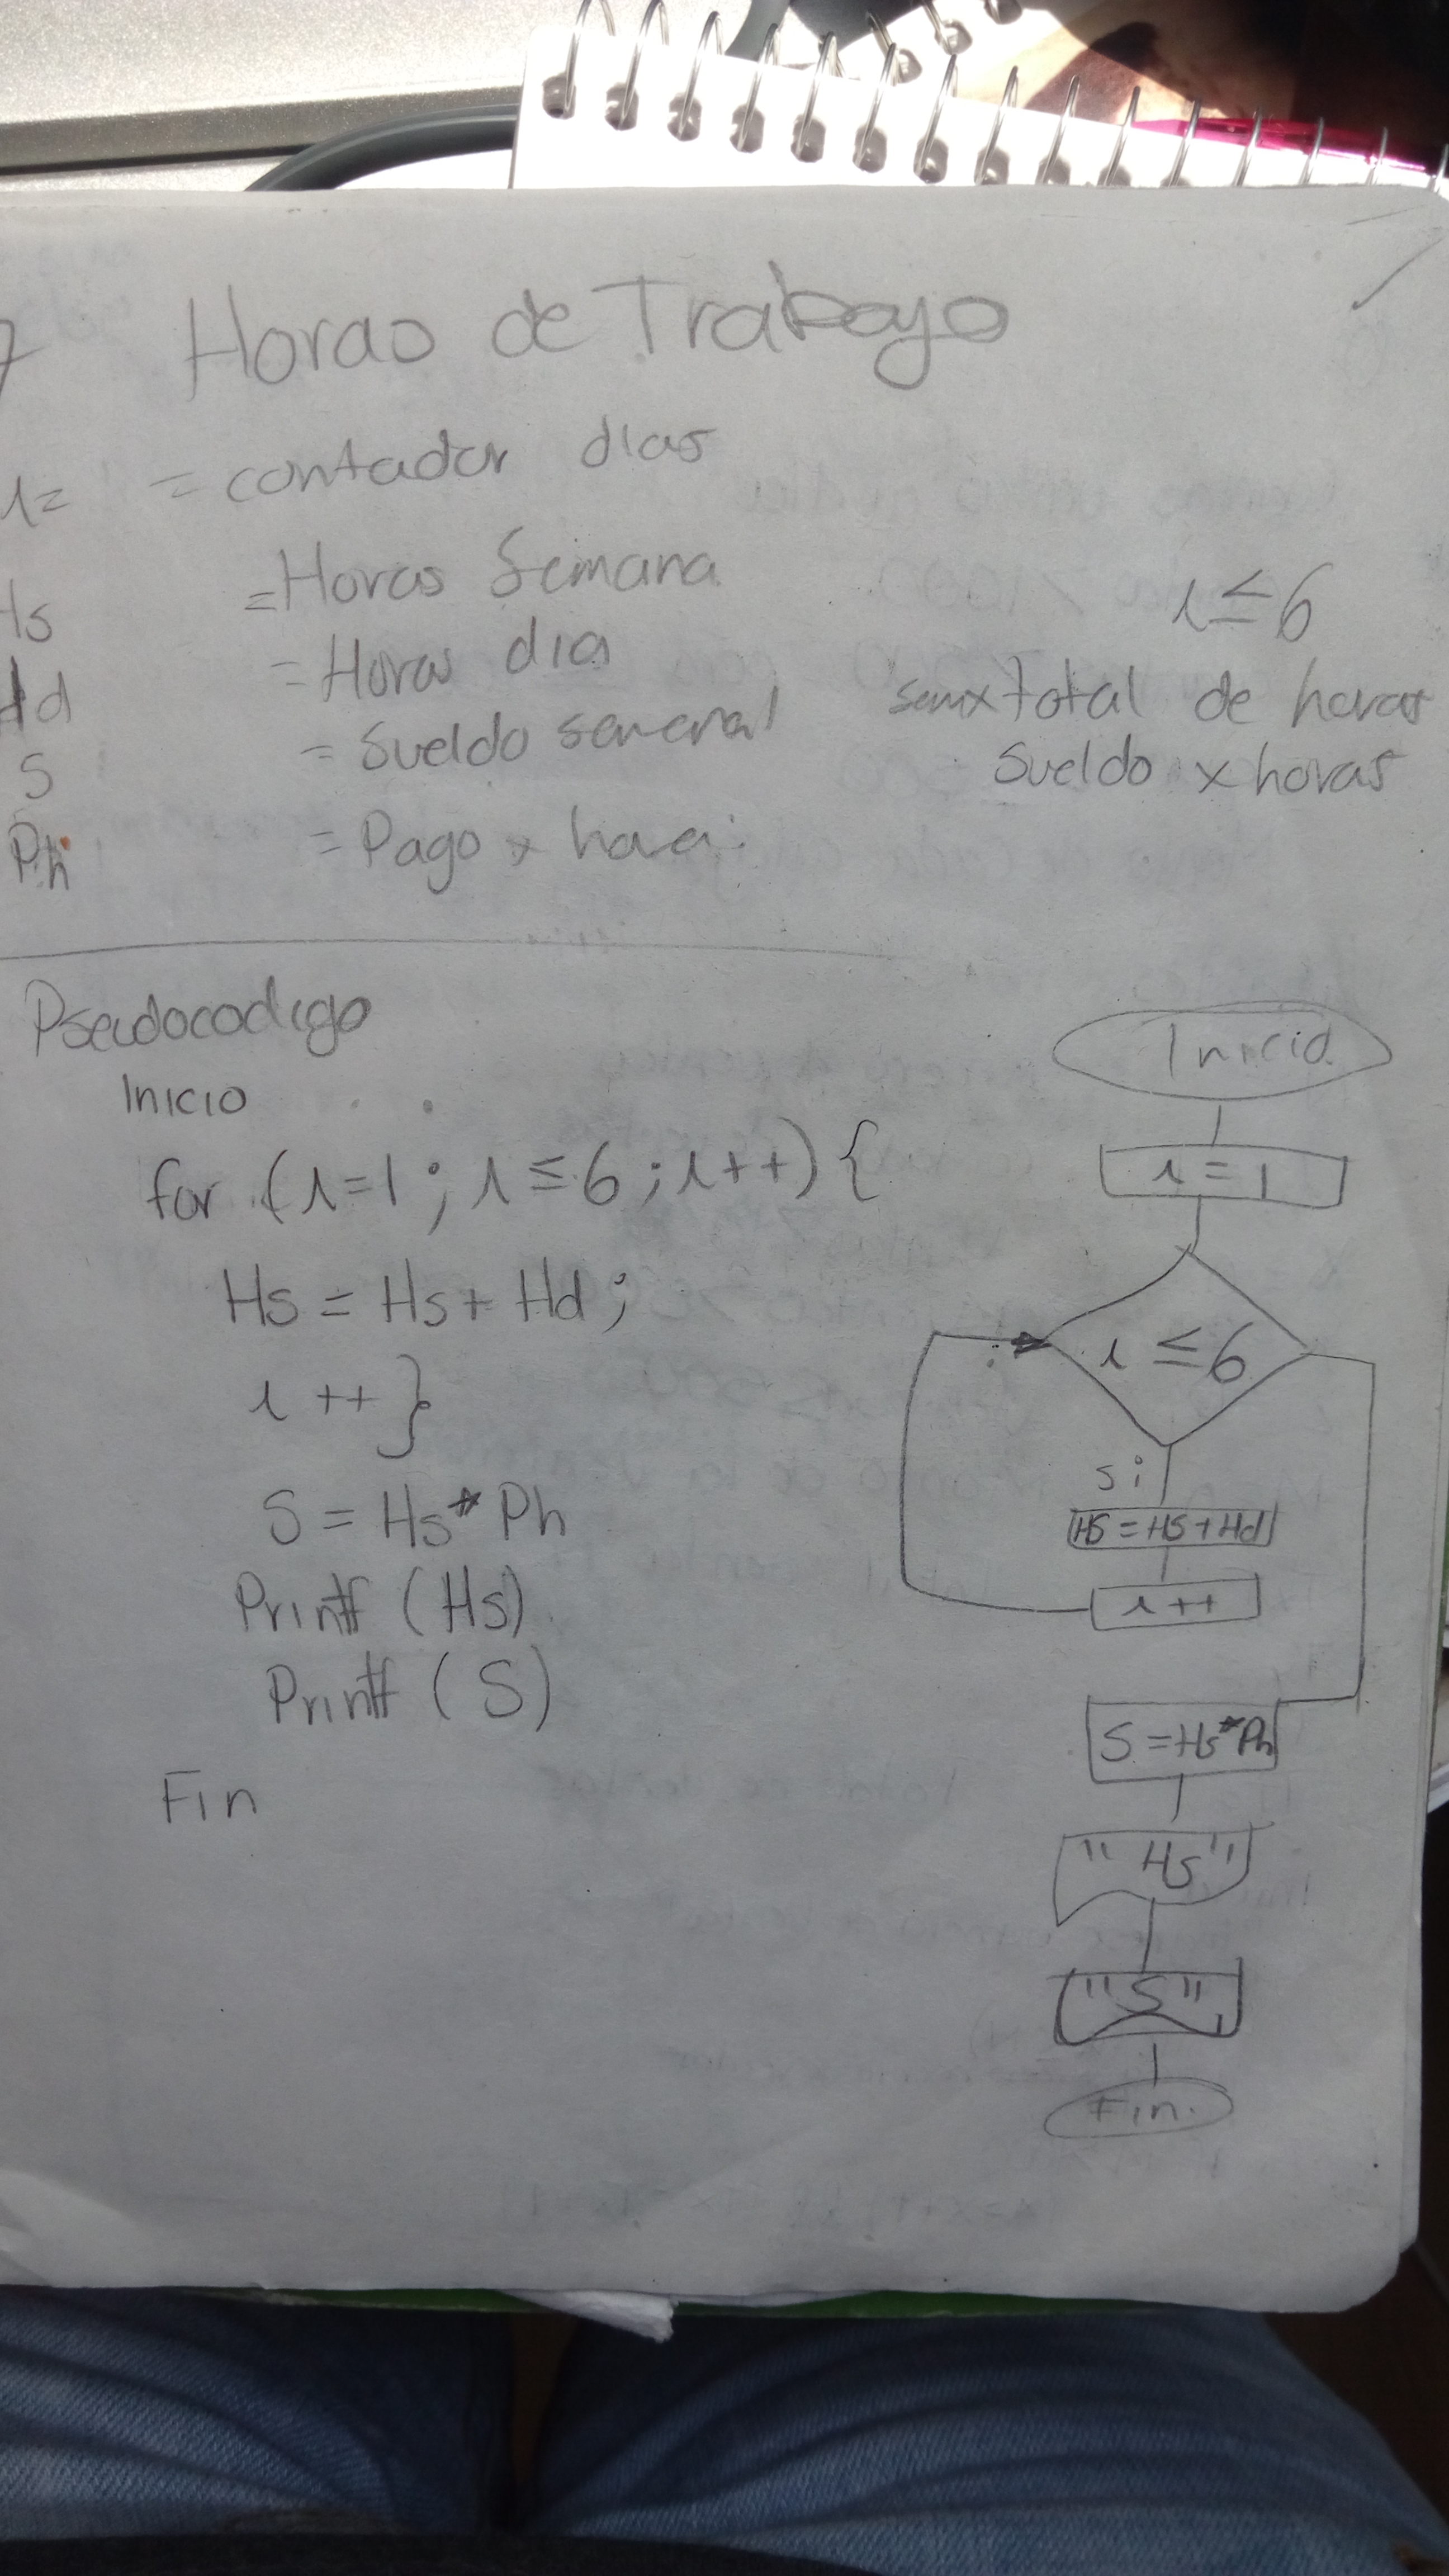 7 Horas de Trabajo
i= = contador dias
Hs = Horas Semana
Hd = Horas dia
S = Sueldo semanal
Ph = Pago x hora
i ≤ 6
total de horas
Sueldo x horas
Pseudocodigo
Inicio
for (i=1; i ≤ 6; i++) {
Hs = Hs + Hd;
i ++ }
S = Hs * Ph
Printf (Hs)
Printf (S)
Fin
Inicio
i = 1
i ≤ 6
si
Hs = Hs + Hd
i ++
S = Hs * Ph
" Hs "
"S"
Fin.